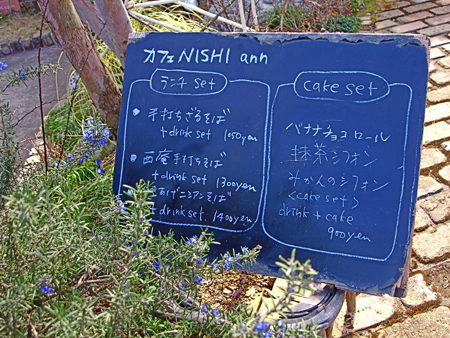 カフェNISHI ann
ランチset
• 手打ちざるそば
+drink set 1050yen
• 西庵手打ちそば
+drink set 1300yen
+drink set 1400yen
cake set
バナナチョコロール
抹茶シフォン
みかんのシフォン
<cake set>
drink + cake
900yen